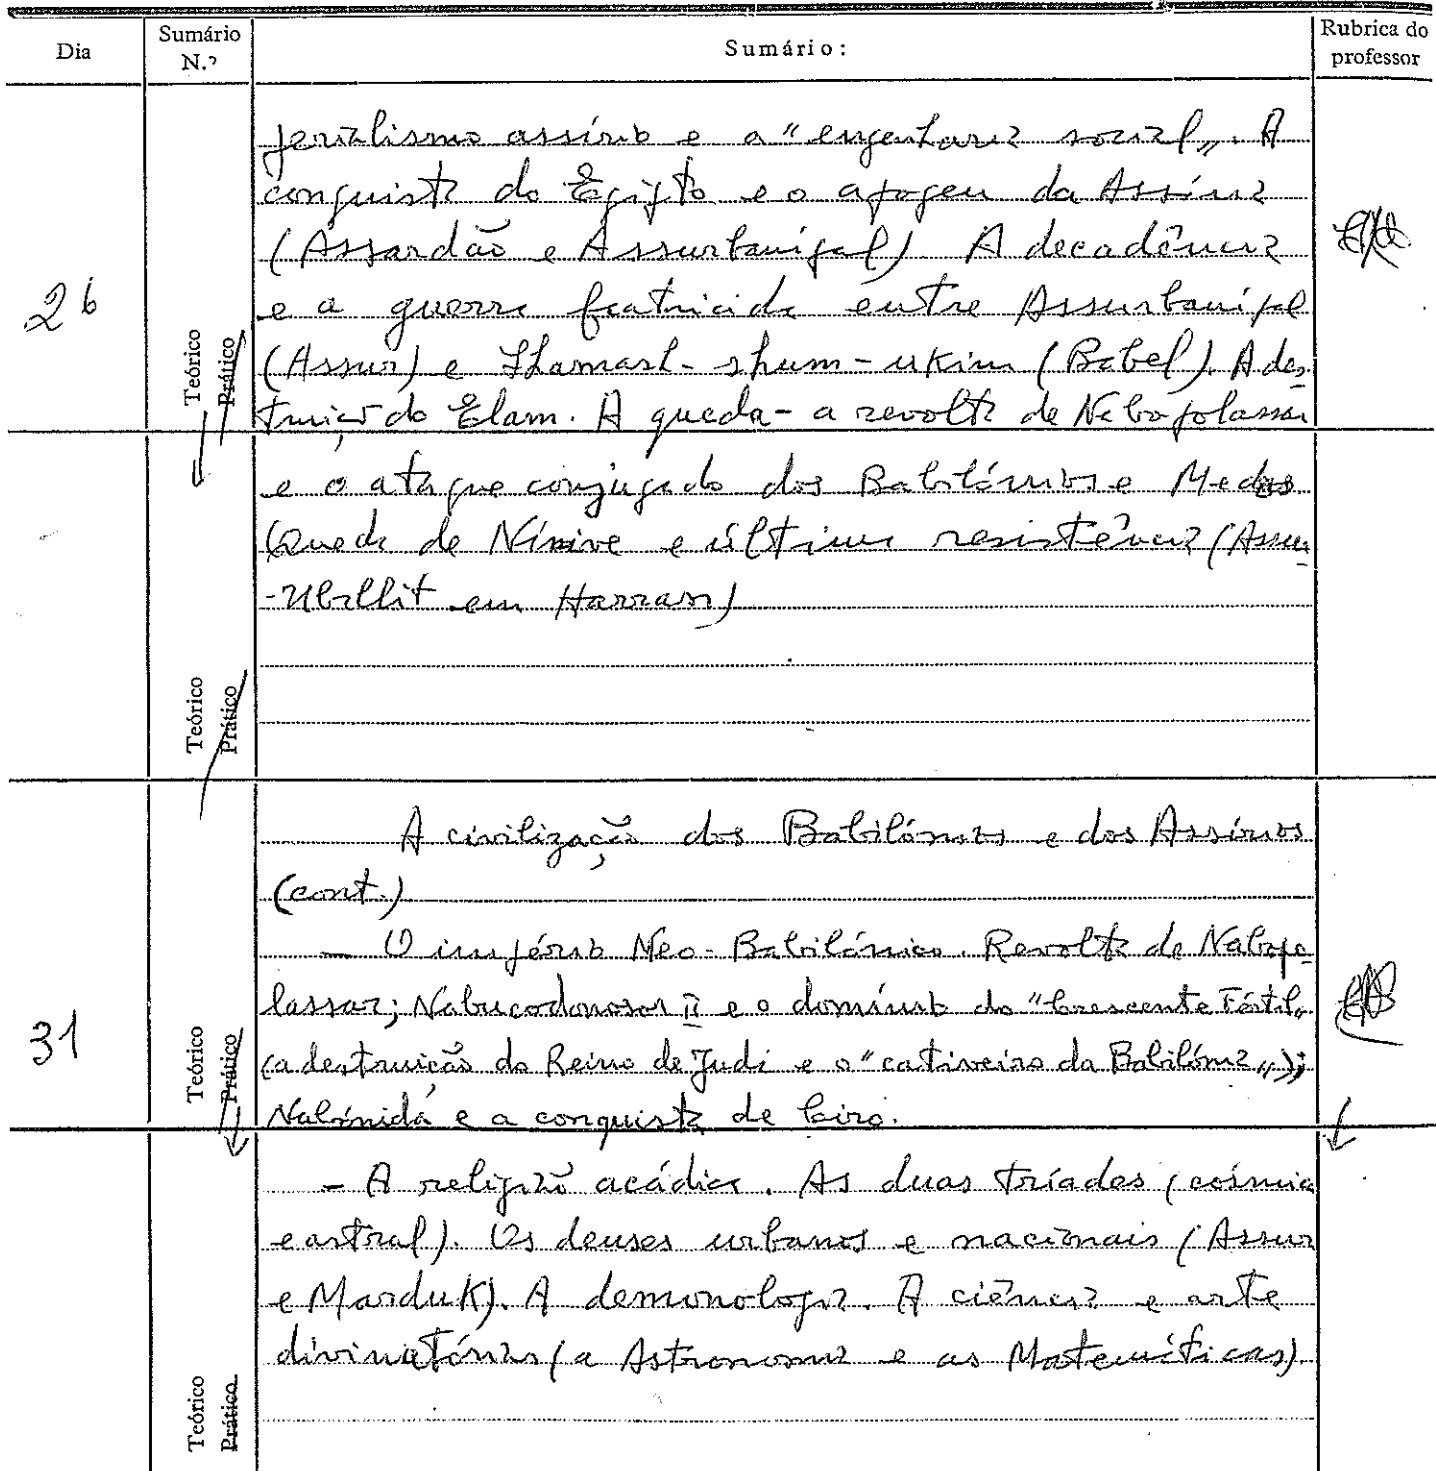 Dia
Sumário N.º
Sumário:
Rubrica do professor
perialismo assírio e a "engenharia social„. A
conquista do Egipto e o apogeu da Assíria
(Assardão e Assurbanipal). A decadência
26
e a guerra fratricida entre Assurbanipal
(Assur) e Shamash-shum-ukim (Babel). A des-
truição do Elam. A queda - a revolta de Nabopolassar
Teórico
Prático
e o ataque conjugado dos Babilónios e Medos
(Queda de Nínive e última resistência (Assur-
-Uballit em Harran)
Teórico
Prático
A civilização dos Babilónios e dos Assírios
(cont.)
— O império Neo-Babilónico. Revolta de Nabopo-
31
lassar; Nabucodonosor II e o domínio do "Crescente Fértil„
(a destruição do Reino de Judá e o "cativeiro da Babilónia„);
Nabónida e a conquista de Ciro.
Teórico
Prático
- A religião acádica. As duas tríades (cósmica
e astral). Os deuses urbanos e nacionais (Assur
e Marduk). A demonologia. A ciência e arte
divinatórias (a Astronomia e as Matemáticas).
Teórico
Prático